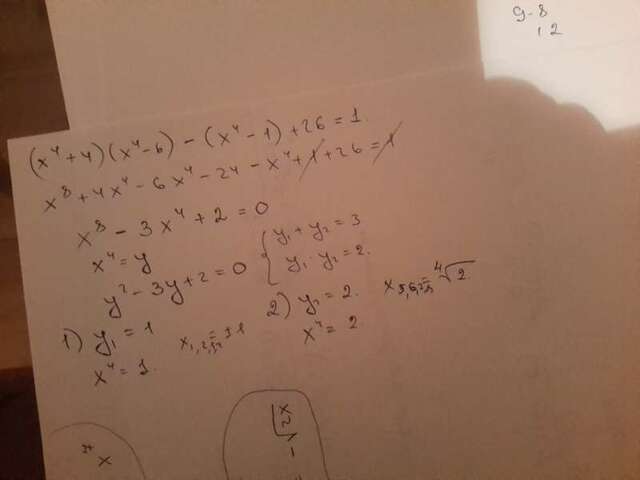 9-8
12
(x⁴+4)(x⁴-6) - (x⁴-1)+26=1.
x⁸+4x⁴-6x⁴-24-x⁴+1+26=1
x⁸-3x⁴+2=0
x⁴=y
y²-3y+2=0 { y₁+y₂=3
y₁·y₂=2.
1) y₁=1
x⁴=1.
2) y₂=2.
x⁴=2
⁴√2.
x